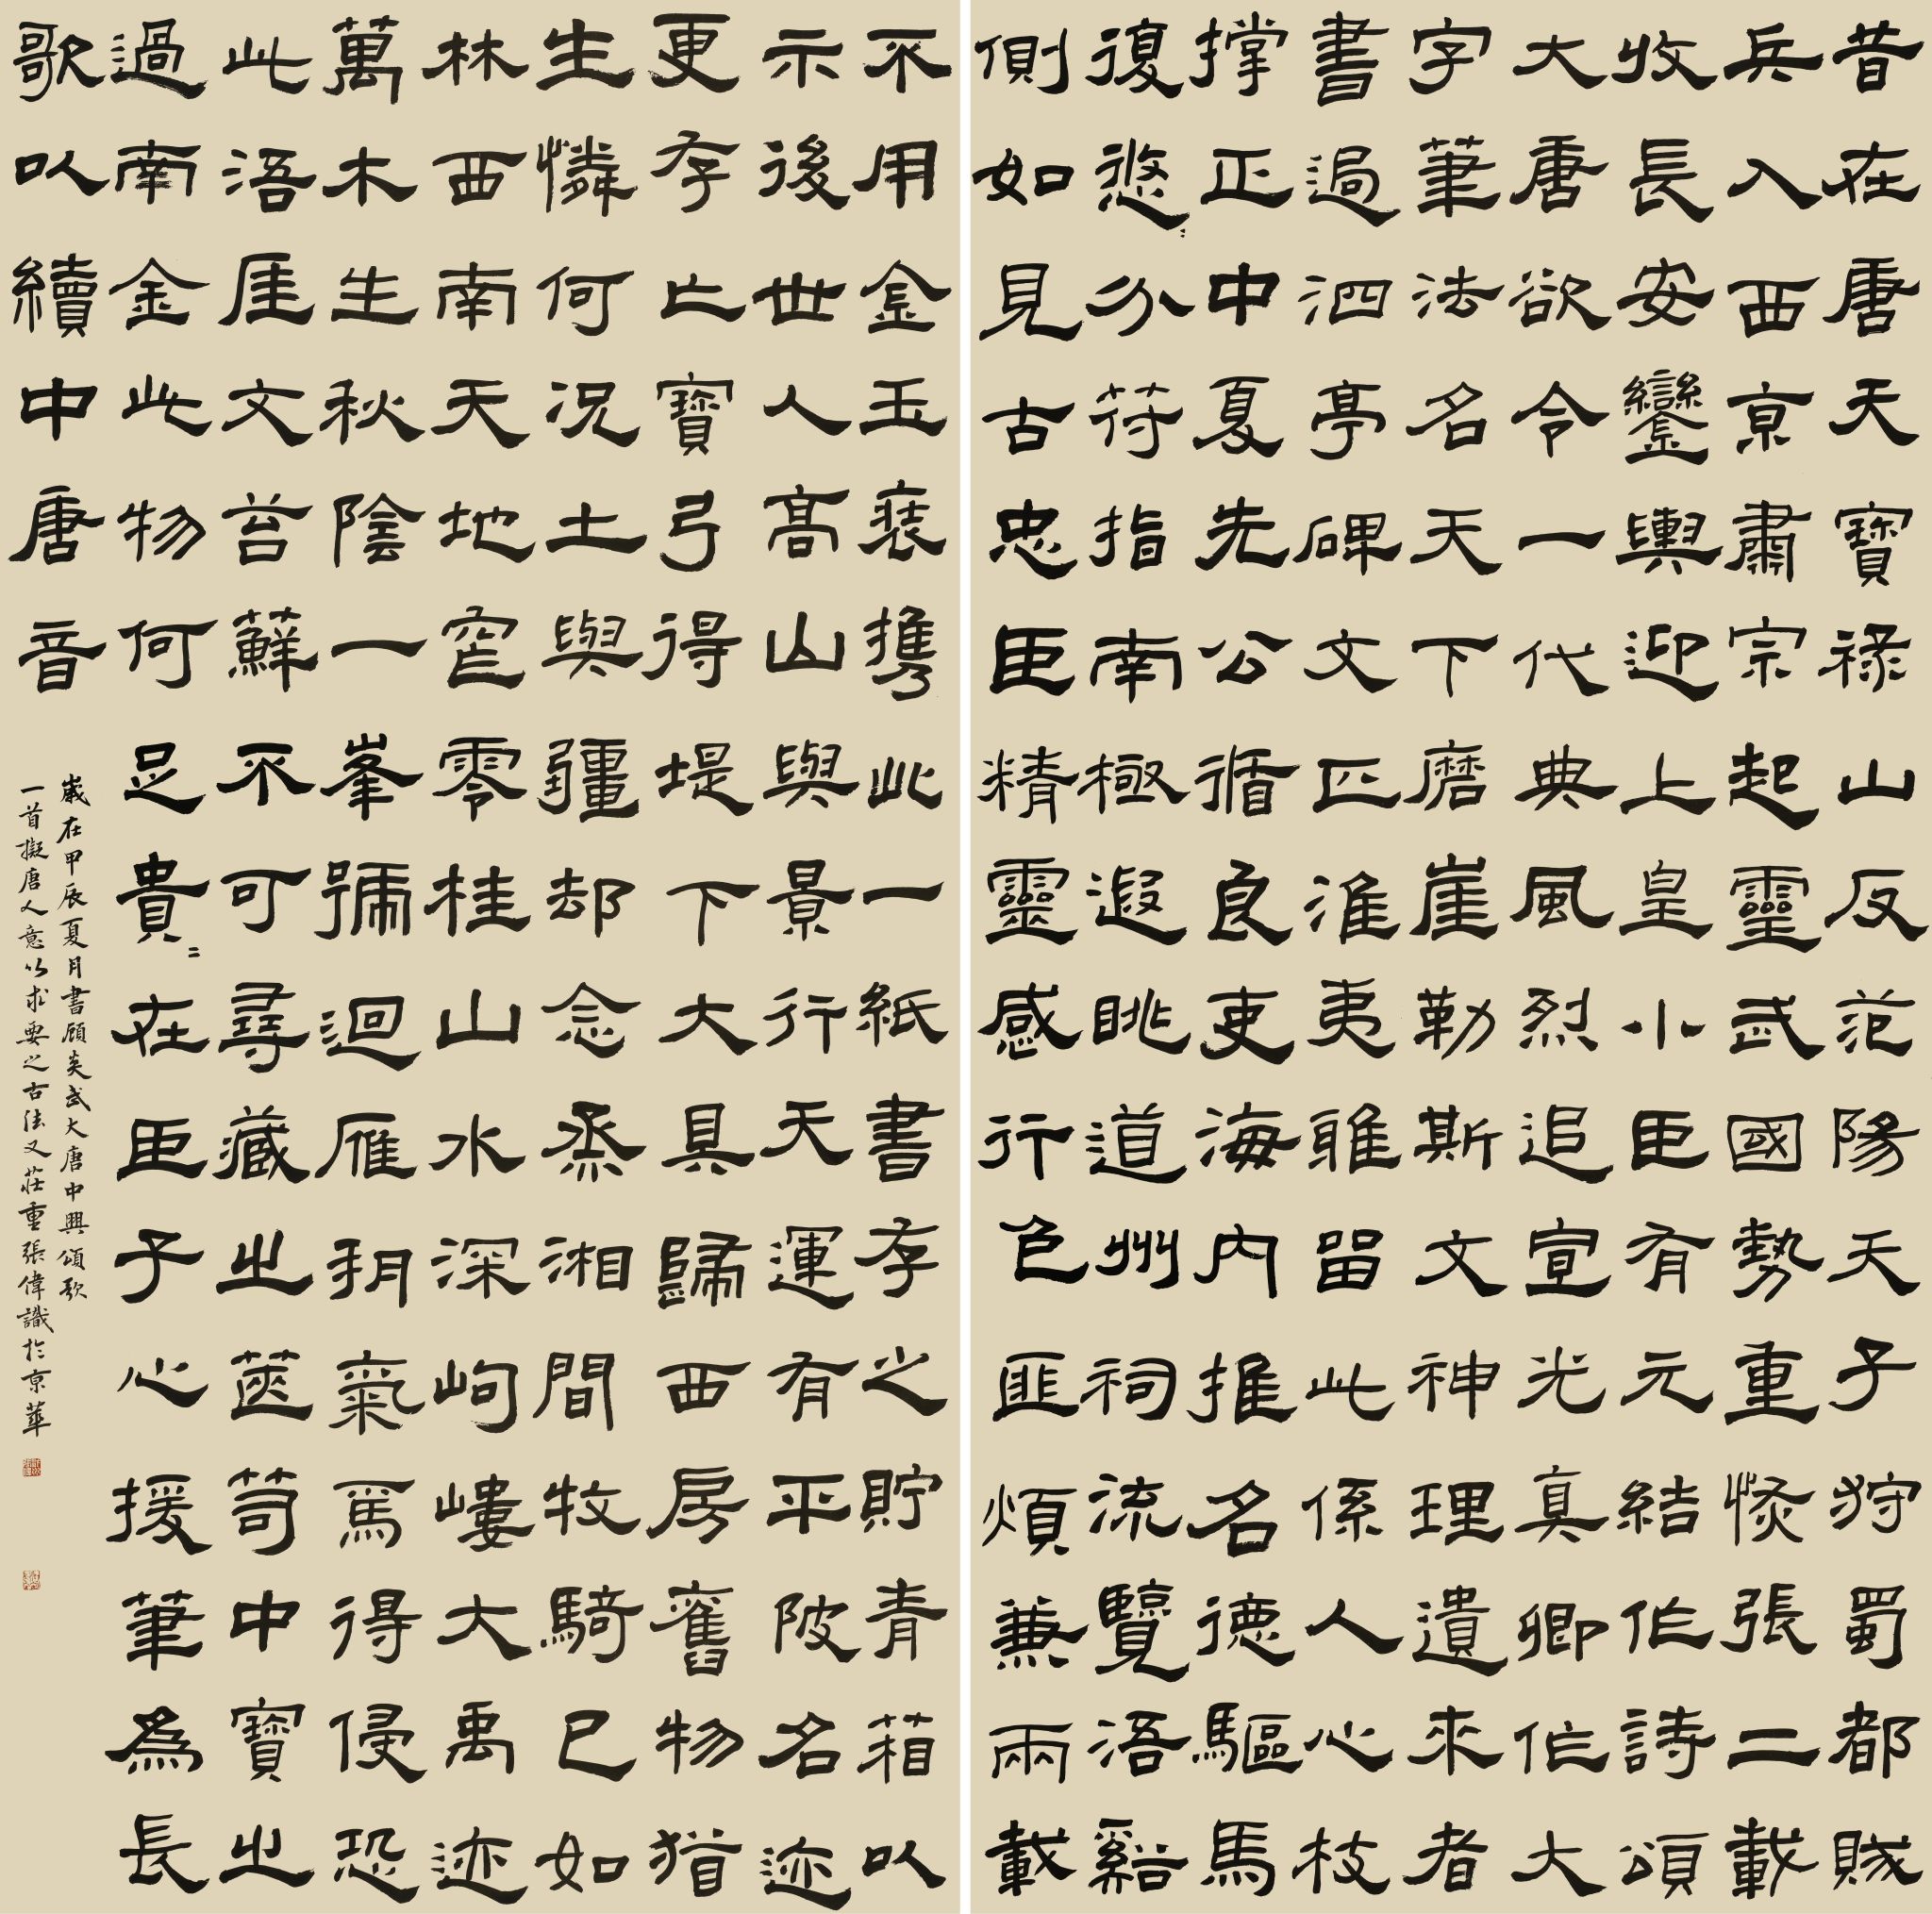 昔在唐天寶祿山反范陽天子狩蜀都賊
兵入西京肅宗起靈武國勢重恢張二載
收長安鑾輿迎上皇小臣有元結作詩頌
大唐欲令一代典風烈追宣光真卿作大
字筆法名天下磨崖勒斯文神理遺來者
書過泗亭碑文匹淮夷雅留此係人心枝
撐正中夏先公循良吏海內推名德驅馬
復悠〻分符指南極遐眺道州祠流覽浯谿
側如見古忠臣精靈感行色匪煩兼兩載
不用金玉裝攜此一紙書存之貯青箱以
示後世人高山與景行天運有平陂名迹
更存亡寶弓得堤下大具歸西房舊物猶
生憐何況土與疆却念烝湘間牧騎已如
林西南天地窄零桂山水深岣嶁大禹迹
萬木生秋陰一峯彌迴雁朔氣焉得侵恐
此浯厓文苔蘚不可尋藏之篋笥中寶之
過南金此物何足貴〻在臣子心援筆為長
歌以續中唐音
歲在甲辰夏月書顧炎武大唐中興頌歌
一首擬唐人意以求要之古法又莊重張偉識於京華